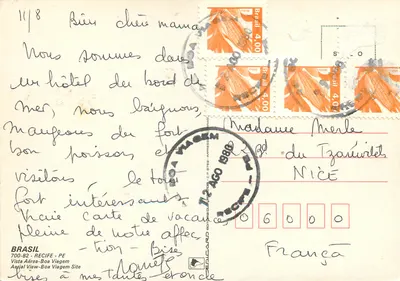 11/8 Bien chère maman
Nous sommes dans
un hôtel du bord de
mer, nous baignons,
mangeons du fort
bon poisson et
visitons, le tout
fort intéressant.
Vraie carte de vacances
pleine de notre affec
-tion - Bise
bises à mes tantes
BRASIL
700-82 - RECIFE - PE
Vista Aérea-Boa Viagem
Aerial View-Boa Viagem Site
Brasil 4,00
BOA VIAGEM
12 AGO 1980
RECIFE - PE
Madame Merle
Bd du
NICE
06000
França